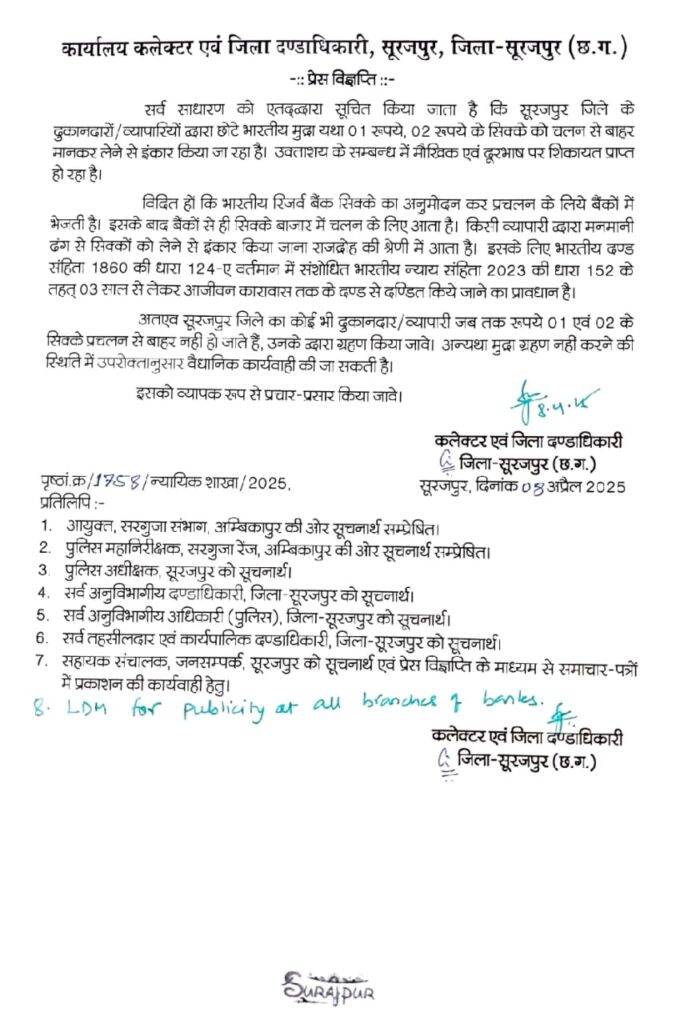 कार्यालय कलेक्टर एवं जिला दण्डाधिकारी, सूरजपुर, जिला-सूरजपुर (छ.ग.)
-:: प्रेस विज्ञप्ति ::-
सर्व साधारण को एतद्द्वारा सूचित किया जाता है कि सूरजपुर जिले के
दुकानदारों/व्यापारियों द्वारा छोटे भारतीय मुद्रा यथा 01 रूपये, 02 रूपये के सिक्के को चलन से बाहर
मानकर लेने से इंकार किया जा रहा है। उक्ताशय के सम्बन्ध में मौखिक एवं दूरभाष पर शिकायत प्राप्त
हो रहा है।
विदित हों कि भारतीय रिजर्व बैंक सिक्के का अनुमोदन कर प्रचलन के लिये बैंकों में
भेजती है। इसके बाद बैंकों से ही सिक्के बाजार में चलन के लिए आता है। किसी व्यापारी द्वारा मनमानी
ढंग से सिक्कों को लेने से इंकार किया जाना राजद्रोह की श्रेणी में आता है। इसके लिए भारतीय दण्ड
संहिता 1860 की धारा 124-ए वर्तमान में संशोधित भारतीय न्याय संहिता 2023 की धारा 152 के
तहत् 03 साल से लेकर आजीवन कारावास तक के दण्ड से दण्डित किये जाने का प्रावधान है।
अतएव सूरजपुर जिले का कोई भी दुकानदार/व्यापारी जब तक रूपये 01 एवं 02 के
सिक्के प्रचलन से बाहर नही हो जाते हैं, उनके द्वारा ग्रहण किया जावे। अन्यथा मुद्रा ग्रहण नही करने की
स्थिति में उपरोक्तानुसार वैधानिक कार्यवाही की जा सकती है।
इसको व्यापक रूप से प्रचार-प्रसार किया जावे।
8.4.25
कलेक्टर एवं जिला दण्डाधिकारी
जिला-सूरजपुर (छ.ग.)
पृष्ठां.क्र/1758/न्यायिक शाखा/2025,
सूरजपुर, दिनांक 08 अप्रैल 2025
प्रतिलिपि :-
1. आयुक्त, सरगुजा संभाग, अम्बिकापुर की ओर सूचनार्थ सम्प्रेषित।
2. पुलिस महानिरीक्षक, सरगुजा रेंज, अम्बिकापुर की ओर सूचनार्थ सम्प्रेषित।
3. पुलिस अधीक्षक, सूरजपुर को सूचनार्थ।
4. सर्व अनुविभागीय दण्डाधिकारी, जिला-सूरजपुर को सूचनार्थ।
5. सर्व अनुविभागीय अधिकारी (पुलिस), जिला-सूरजपुर को सूचनार्थ।
6. सर्व तहसीलदार एवं कार्यपालिक दण्डाधिकारी, जिला-सूरजपुर को सूचनार्थ।
7. सहायक संचालक, जनसम्पर्क, सूरजपुर को सूचनार्थ एवं प्रेस विज्ञप्ति के माध्यम से समाचार-पत्रों
में प्रकाशन की कार्यवाही हेतु।
8. LDM for publicity at all branches of banks.
कलेक्टर एवं जिला दण्डाधिकारी
जिला-सूरजपुर (छ.ग.)
SURAJPUR